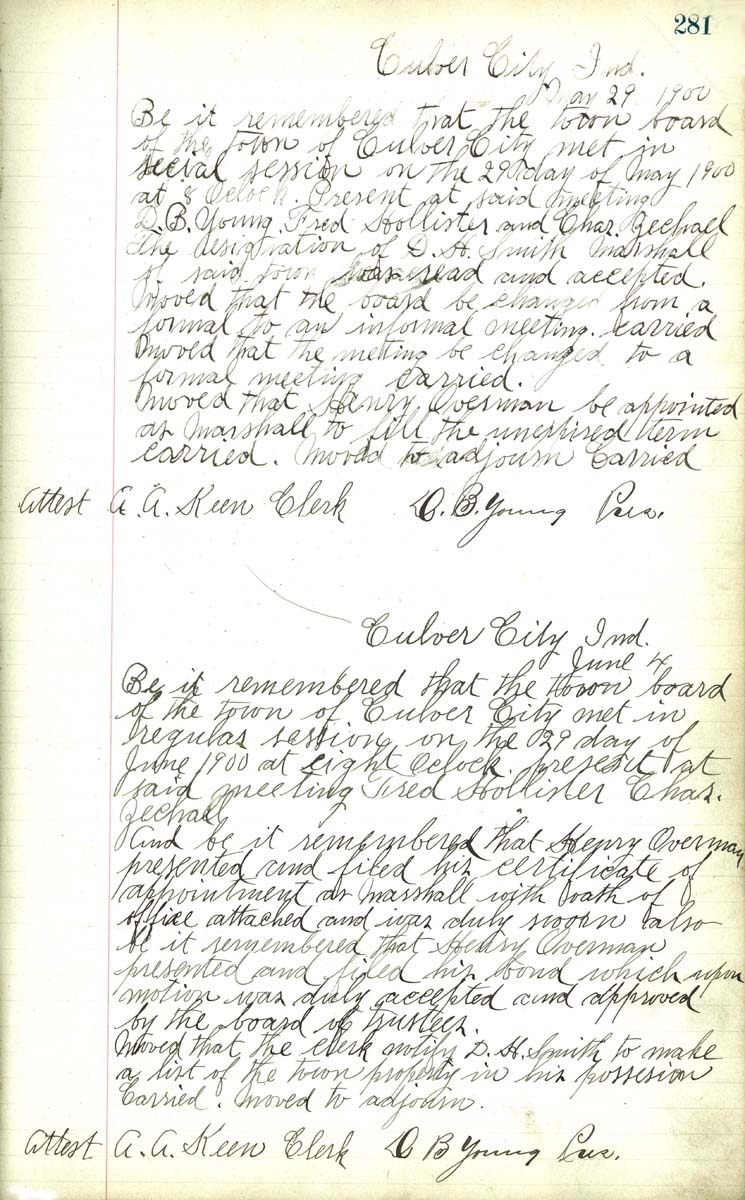 281
Culver City Ind.
May 29 1900
Be it remembered that the town board
of the town of Culver City met in
secial session on the 29 day of May 1900
at 8 Oclock. Present at said meeting
D.B. Young Fred Hollister and Chas. Zechall
The designation of D. H. Smith Marshall
of said town was read and accepted.
Moved that the board be changed from a
formal to an informal meeting. carried
Moved that the meting be changed to a
formal meeting carried.
Moved that Henry Overman be appointed
as Marshall to fill the unexpired term
carried. Moved to adjourn Carried
Attest A. A. Keen Clerk D. B. Young Pres.
Culver City Ind.
June 4
Be it remembered that the town board
of the town of Culver City met in
regular session on the 29 day of
June 1900 at eight Oclock. present at
said meeting Fred Hollister Chas.
Zechall
And be it remembered that Henry Overman
presented and filed his certificate of
appointment as Marshall with oath of
office attached and was duly sworn also
be it remembered that Henry Overman
presented and filed his bond which upon
motion was duly accepted and approved
by the board of trustees.
Moved that the clerk notify D. H. Smith to make
a list of the town property in his possesion
Carried. Moved to adjourn.
Attest A. A. Keen Clerk D B Young Pres.